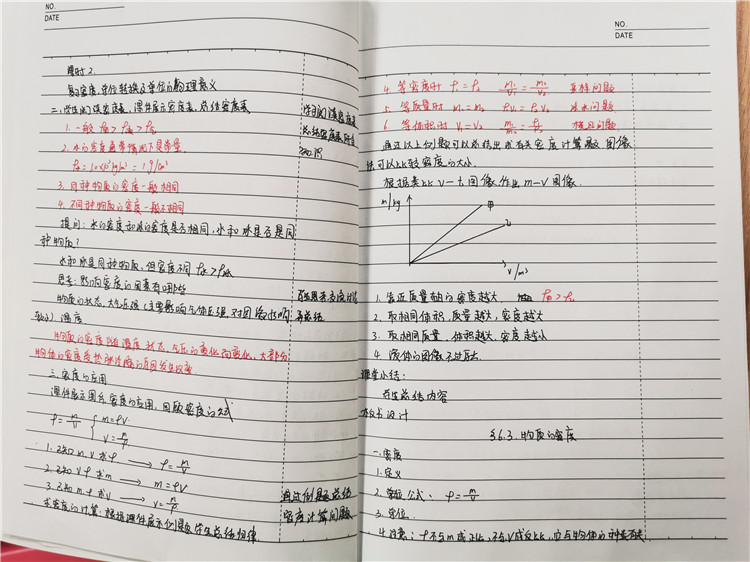 NO.
DATE
课时2.
复习密度,单位转换及单位的物理意义
二、学生阅读密度表,课件展示密度表,总结密度表
1. 一般 ρ固>ρ液>ρ气
2. 水的密度通常情况下是常量.
ρ水=1.0×10³kg/m³=1g/cm³
3. 同种物质的密度一般相同
4. 不同种物质的密度一般不相同
提问:水的密度和冰的密度是否相同,水和冰是否是同
种物质?
水和冰是同种物质,但密度不同 ρ水>ρ冰
思考:影响密度的因素有哪些
物质的状态,大气压强(主要影响气体压强,对固
温度
物质的密度随温度、状态、气压的变化而变化,大部分
物体的密度受热胀冷缩的原因发生改变
三、密度的应用
课件展示图片,密度的应用,回顾密度的公式
ρ=m/V { m=ρV
V=m/ρ
1. 已知m.V求ρ → ρ=m/V
2. 已知V.ρ求m → m=ρV
3. 已知m.ρ求V → V=m/ρ
求密度的计算:根据课件展示例题,学生总结规律
学生阅读密度表
总结密度表
知识
学生思考
并总结
通过例题总结
密度计算问题
NO.
DATE
4. 等密度时 ρ₁=ρ₂ m₁/V₁=m₂/V₂ 问题
5. 等质量时 m₁=m₂ ρ₁V₁=ρ₂V₂ 冰水问题
6. 等体积时 V₁=V₂ m₁/m₂=ρ₁/ρ₂ 瓶子问题
通过以上例题可以总结出求有关密度计算题,图像
法可以比较密度的大小.
根据类比v-t图像作出m-V图像.
m/kg
甲
乙
V/m³
1. 靠近质量轴的密度越大 ρ甲>ρ乙
2. 取相同体积,质量越大,密度越大
3. 取相同质量,体积越大,密度越小
4. 液体的图像不过原点
课堂小结:
学生总结内容
板书设计
§6.3.物质的密度
一.密度
1.定义
2. 公式: ρ=m/V
3. 单位
4. 注意:ρ不与m成正比,不与V成反比,应与物体的种类有关